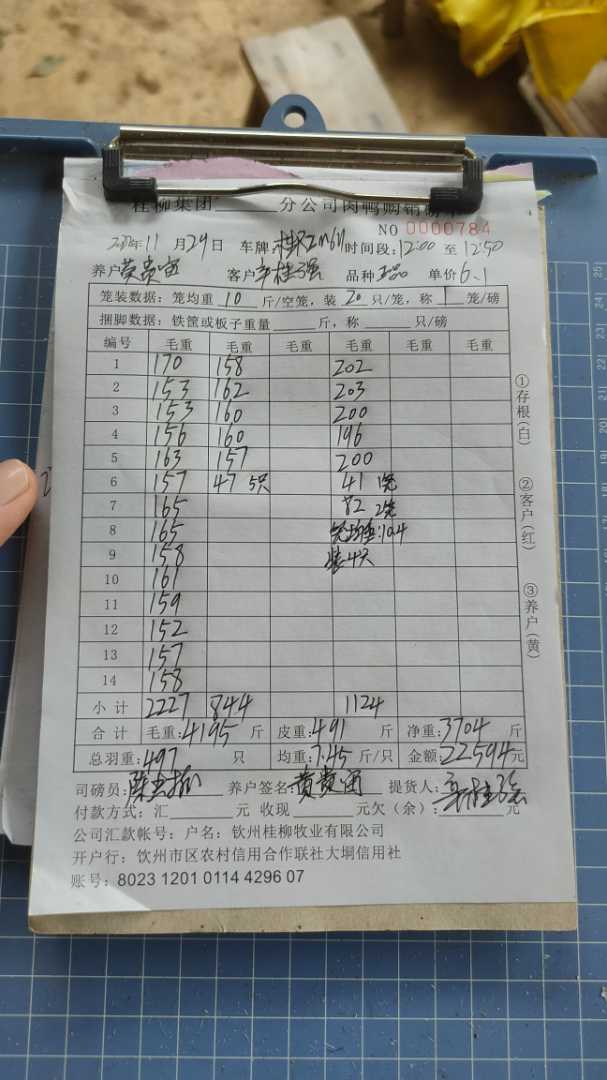 桂柳集团 分公司肉鸭购销
NO 0000784
年11月29日 车牌: 时间段:12:00 至 12:50
养户 黄贵宙 客户 辛桂强 品种 单价6.1
笼装数据: 笼均重 10 斤/空笼, 装 20 只/笼, 称 1 笼/磅
捆脚数据: 铁筐或板子重量 斤, 称 只/磅
编号 毛重 毛重 毛重 毛重 毛重 毛重
1 170 158 202
2 153 162 203
3 153 160 200
4 156 160 196
5 163 157 200
6 157 47 5只 41 1笼
7 165 82 2笼
8 165 笼均重:10.4
9 158 装4只
10 161
11 159
12 152
13 157
14 158
小计 2227 844 1124
合计 毛重:4195 斤 皮重:491 斤 净重:3704 斤
总羽重:497 只 均重:7.45 斤/只 金额:22594元
司磅员: 养户签名: 黄贵宙 提货人: 辛桂强
付款方式: 汇 元 收现 元欠(余): 元
公司汇款帐号: 户名: 钦州桂柳牧业有限公司
开户行: 钦州市区农村信用合作联社大垌信用社
账号: 8023 1201 0114 4296 07
①存根(白)
②客户(红)
③养户(黄)